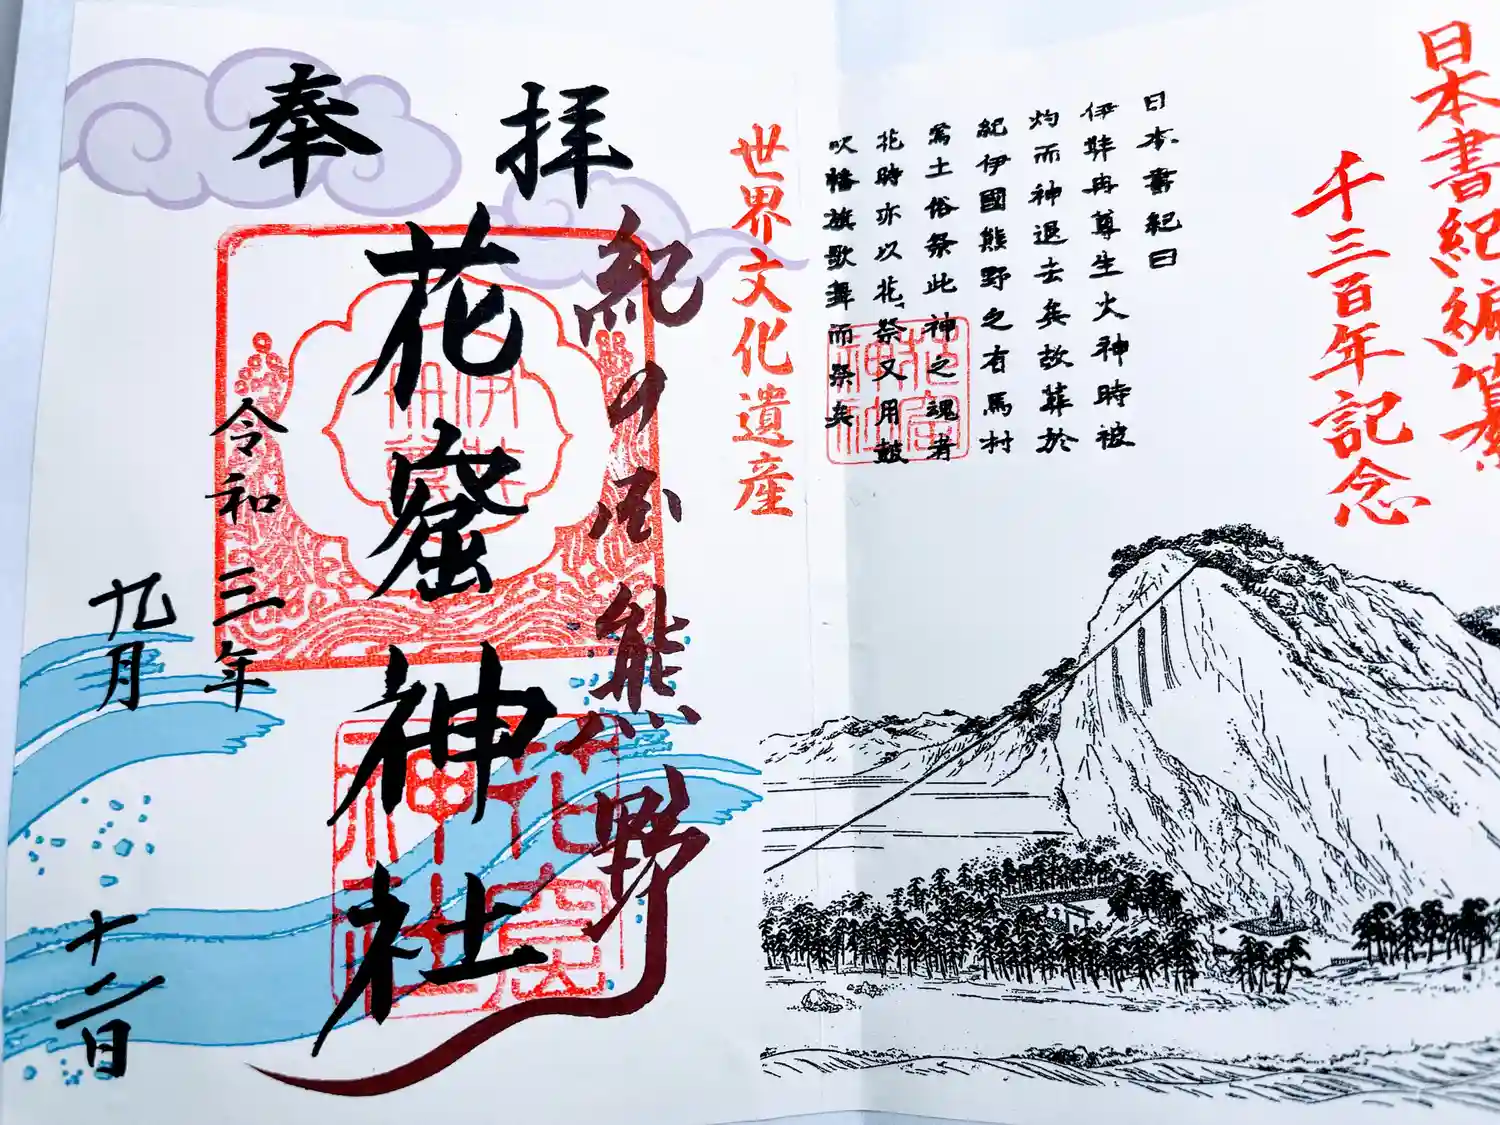 日本書紀編纂
千三百年記念
日本書紀曰
伊弉冉尊生火神時被
灼而神退去矣故葬於
紀伊國熊野之有馬村
焉土俗祭此神之魂者
花時亦以花祭又用鼓
吹幡旗歌舞而祭矣
花窟神社
世界文化遺産
紀の国熊野
奉拝
花窟神社
伊弉冉尊
花窟神社
令和三年
九月
十二日